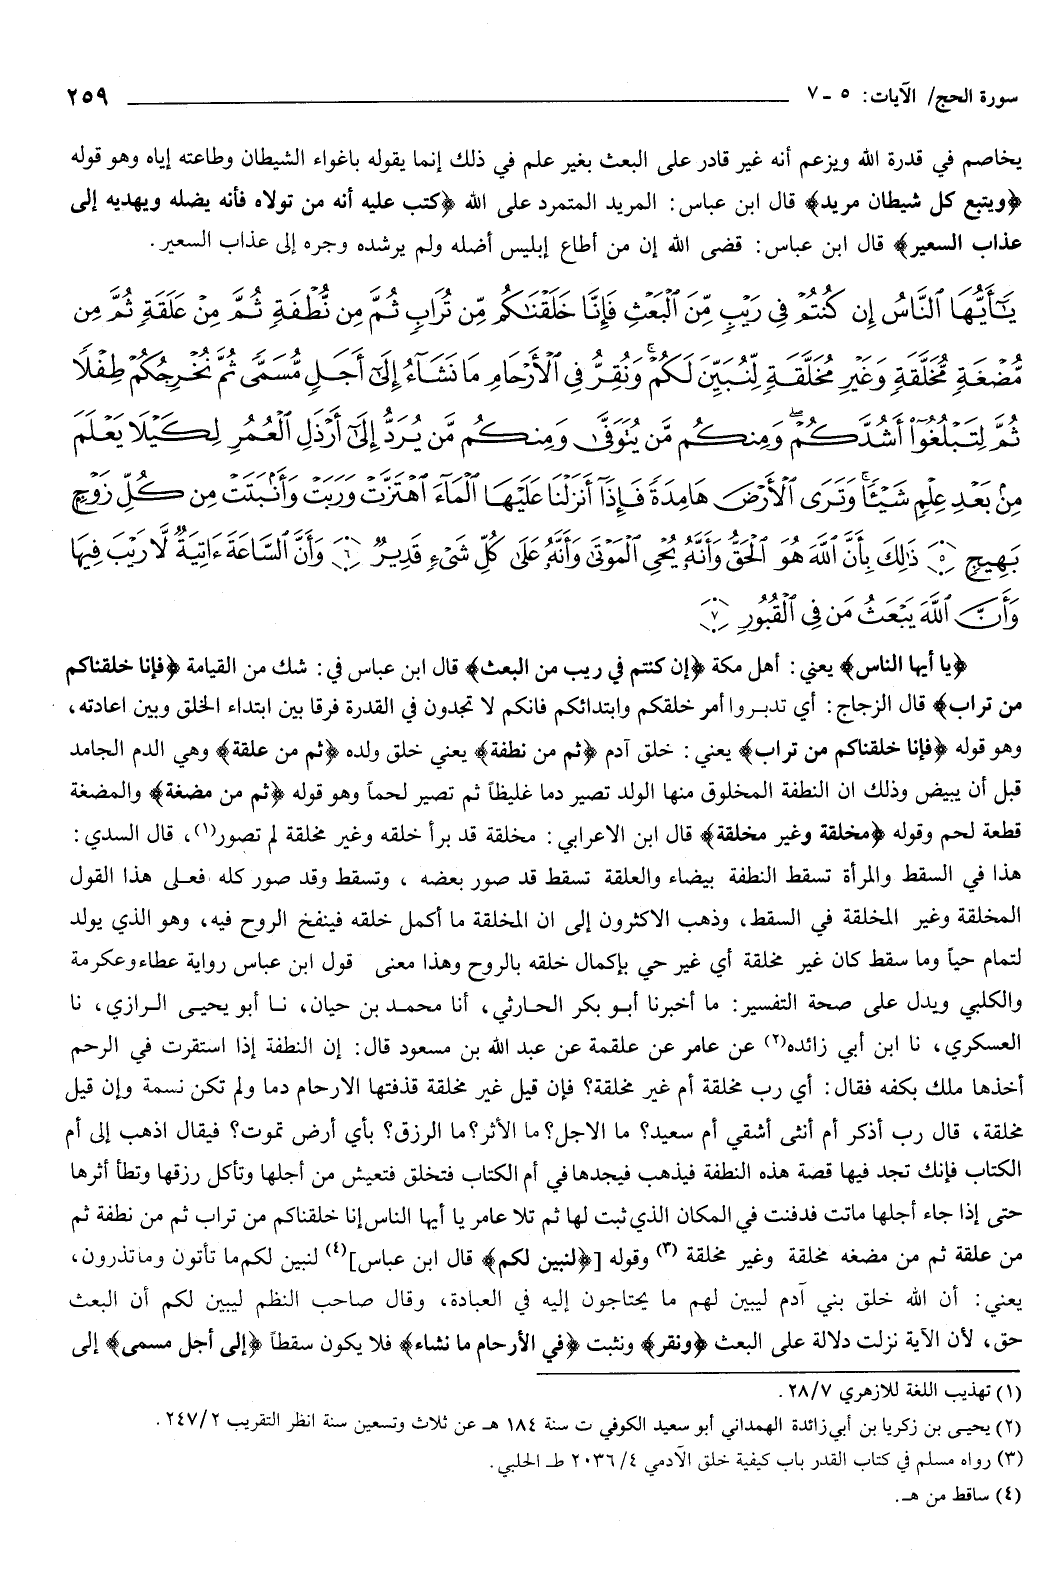 سورة الحج/ الآيات: ٥ - ٧ ٢٥٩
يخاصم في قدرة الله ويزعم أنه غير قادر على البعث بغير علم في ذلك إنما يقوله باغواء الشيطان وطاعته إياه وهو قوله
﴿ويتبع كل شيطان مريد﴾ قال ابن عباس: المريد المتمرد على الله ﴿كتب عليه أنه من تولاه فأنه يضله ويهديه إلى
عذاب السعير﴾ قال ابن عباس: قضى الله إن من أطاع إبليس أضله ولم يرشده وجره إلى عذاب السعير.
يَٰٓأَيُّهَا ٱلنَّاسُ إِن كُنتُمْ فِى رَيْبٍ مِّنَ ٱلْبَعْثِ فَإِنَّا خَلَقْنَٰكُم مِّن تُرَابٍ ثُمَّ مِن نُّطْفَةٍ ثُمَّ مِنْ عَلَقَةٍ ثُمَّ مِن
مُّضْغَةٍ مُّخَلَّقَةٍ وَغَيْرِ مُخَلَّقَةٍ لِّنُبَيِّنَ لَكُمْ ۚ وَنُقِرُّ فِى ٱلْأَرْحَامِ مَا نَشَآءُ إِلَىٰٓ أَجَلٍ مُّسَمًّى ثُمَّ نُخْرِجُكُمْ طِفْلًا
ثُمَّ لِتَبْلُغُوٓا۟ أَشُدَّكُمْ ۖ وَمِنكُم مَّن يُتَوَفَّىٰ وَمِنكُم مَّن يُرَدُّ إِلَىٰٓ أَرْذَلِ ٱلْعُمُرِ لِكَيْلَا يَعْلَمَ
مِنۢ بَعْدِ عِلْمٍ شَيْـًٔا ۚ وَتَرَى ٱلْأَرْضَ هَامِدَةً فَإِذَآ أَنزَلْنَا عَلَيْهَا ٱلْمَآءَ ٱهْتَزَّتْ وَرَبَتْ وَأَنۢبَتَتْ مِن كُلِّ زَوْجٍۭ
بَهِيجٍ ﴿٥﴾ ذَٰلِكَ بِأَنَّ ٱللَّهَ هُوَ ٱلْحَقُّ وَأَنَّهُۥ يُحْىِ ٱلْمَوْتَىٰ وَأَنَّهُۥ عَلَىٰ كُلِّ شَىْءٍ قَدِيرٌ ﴿٦﴾ وَأَنَّ ٱلسَّاعَةَ ءَاتِيَةٌ لَّا رَيْبَ فِيهَا
وَأَنَّ ٱللَّهَ يَبْعَثُ مَن فِى ٱلْقُبُورِ ﴿٧﴾
﴿يا أيها الناس﴾ يعني: أهل مكة ﴿إن كنتم في ريب من البعث﴾ قال ابن عباس في: شك من القيامة ﴿فإنا خلقناكم
من تراب﴾ قال الزجاج: أي تدبروا أمر خلقكم وابتدائكم فانكم لا تجدون في القدرة فرقا بين ابتداء الخلق وبين اعادته،
وهو قوله ﴿فإنا خلقناكم من تراب﴾ يعني: خلق آدم ﴿ثم من نطفة﴾ يعني خلق ولده ﴿ثم من علقة﴾ وهي الدم الجامد
قبل أن يبيض وذلك ان النطفة المخلوق منها الولد تصير دما غليظاً ثم تصير لحماً وهو قوله ﴿ثم من مضغة﴾ والمضغة
قطعة لحم وقوله ﴿مخلقة وغير مخلقة﴾ قال ابن الاعرابي: مخلقة قد برأ خلقه وغير مخلقة لم تصور(١)، قال السدي:
هذا في السقط والمرأة تسقط النطفة بيضاء والعلقة تسقط قد صور بعضه ، وتسقط وقد صور كله فعلى هذا القول
المخلقة وغير المخلقة في السقط، وذهب الاكثرون إلى ان المخلقة ما أكمل خلقه فينفخ الروح فيه، وهو الذي يولد
لتمام حياً وما سقط كان غير مخلقة أي غير حي بإكمال خلقه بالروح وهذا معنى قول ابن عباس رواية عطاء وعكرمة
والكلبي ويدل على صحة التفسير: ما أخبرنا أبو بكر الحارثي، أنا محمد بن حيان، نا أبو يحيى الرازي، نا
العسكري، نا ابن أبي زائده(٢) عن عامر عن علقمة عن عبد الله بن مسعود قال: إن النطفة إذا استقرت في الرحم
أخذها ملك بكفه فقال: أي رب مخلقة أم غير مخلقة؟ فإن قيل غير مخلقة قذفتها الارحام دما ولم تكن نسمة وإن قيل
مخلقة، قال رب أذكر أم أنثى أشقي أم سعيد؟ ما الاجل؟ ما الأثر؟ ما الرزق؟ بأي أرض تموت؟ فيقال اذهب إلى أم
الكتاب فإنك تجد فيها قصة هذه النطفة فيذهب فيجدها في أم الكتاب فتخلق فتعيش من أجلها وتأكل رزقها وتطأ أثرها
حتى إذا جاء أجلها ماتت فدفنت في المكان الذي ثبت لها ثم تلا عامر يا أيها الناس إنا خلقناكم من تراب ثم من نطفة ثم
من علقة ثم من مضغه مخلقة وغير مخلقة (٣) وقوله [﴿لنبين لكم﴾ قال ابن عباس](٤) لنبين لكم ما تأتون وما تذرون،
يعني: أن الله خلق بني آدم ليبين لهم ما يحتاجون إليه في العبادة، وقال صاحب النظم ليبين لكم أن البعث
حق، لأن الآية نزلت دلالة على البعث ﴿ونقر﴾ ونثبت ﴿في الأرحام ما نشاء﴾ فلا يكون سقطاً ﴿إلى أجل مسمى﴾ إلى
(١) تهذيب اللغة للازهري ٢٨/٧.
(٢) يحيى بن زكريا بن أبي زائدة الهمداني أبو سعيد الكوفي ت سنة ١٨٤ هـ عن ثلاث وتسعين سنة انظر التقريب ٢٤٧/٢.
(٣) رواه مسلم في كتاب القدر باب كيفية خلق الآدمي ٤/ ٢٠٣٦ طـ الحلبي.
(٤) ساقط من هـ.